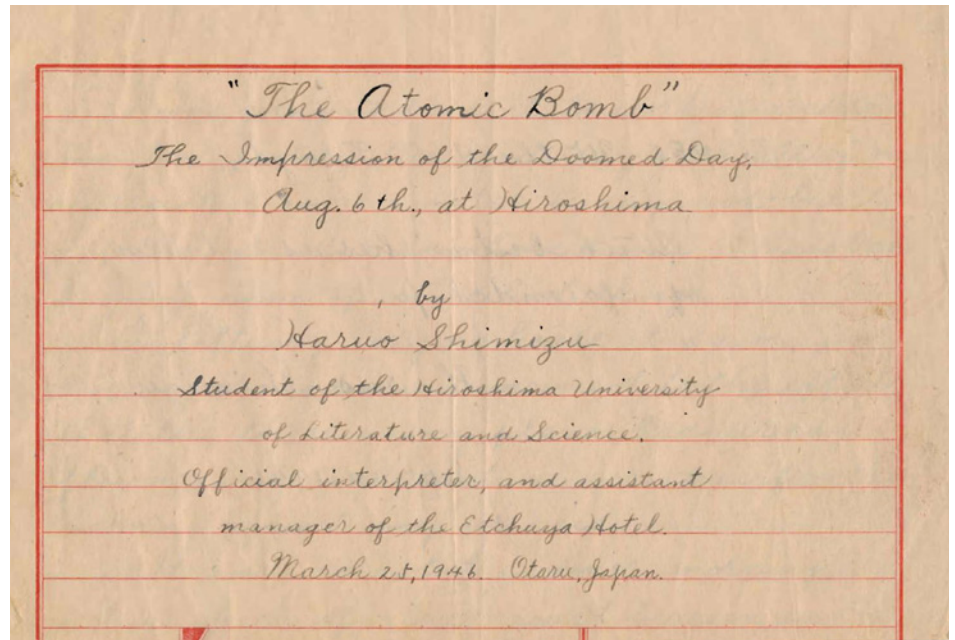 "The Atomic Bomb"
The Impression of the Doomed Day,
Aug. 6th., at Hiroshima
by
Haruo Shimizu
Student of the Hiroshima University
of Literature and Science.
Official interpreter, and assistant
manager of the Etchuya Hotel.
March 25, 1946. Otaru, Japan.